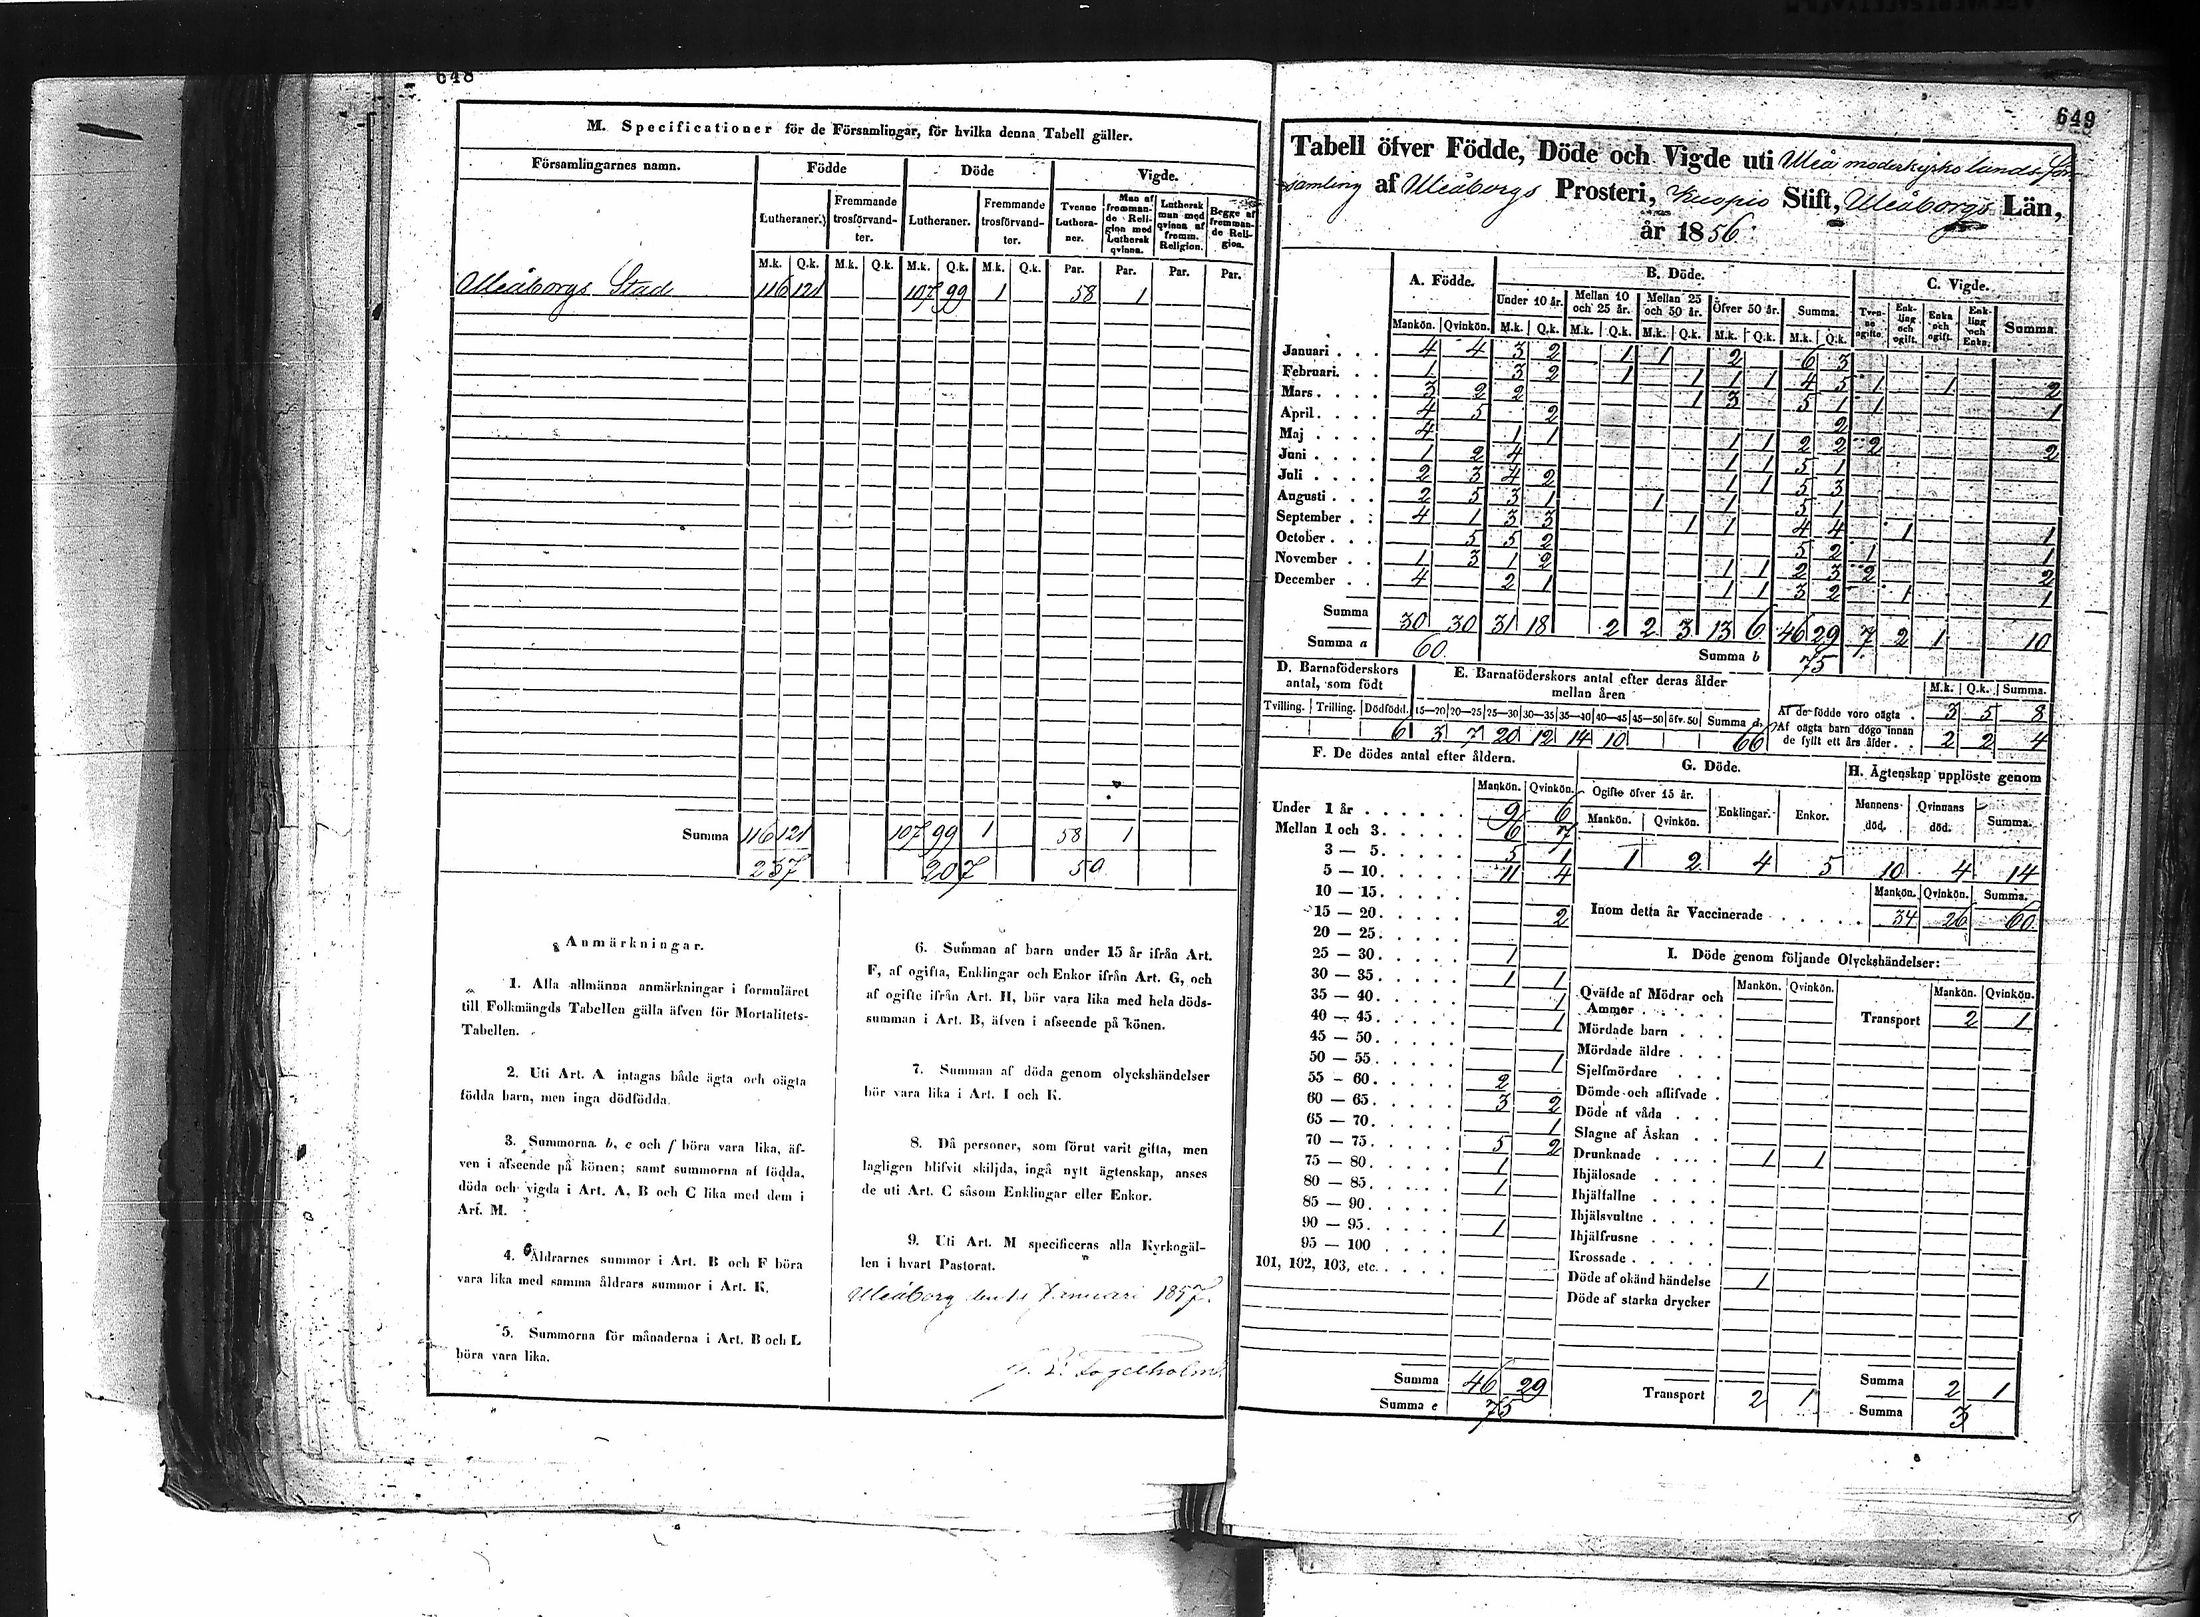 648
M. Specificationer för de Församlingar, för hvilka denna Tabell gäller.
Församlingarnes namn. Födde Döde Vigde.
Lutheraner. Fremmande trosförvandter. Lutheraner. Fremmande trosförvandter. Tvenne Lutheraner. Man af fremmande Religion med Luthersk qvinna. Luthersk man med qvinna af fremm. Religion. Begge af fremmande Religion.
M.k. Q.k. M.k. Q.k. M.k. Q.k. M.k. Q.k. Par. Par. Par. Par.
Uleåborgs Stad 116 121 107 99 1 58 1
Summa 116 121 107 99 1 58 1
237 207 59
Anmärkningar.
1. Alla allmänna anmärkningar i formuläret
till Folkmängds Tabellen gälla äfven för Mortalitets-
Tabellen.
2. Uti Art. A intagas både ägta och oägta
födda barn, men inga dödfödda.
3. Summorna b, e och f böra vara lika, äf-
ven i afseende på könen; samt summorna af födda,
döda och vigda i Art. A, B och C lika med dem i
Art. M.
4. Åldrarnes summor i Art. B och F böra
vara lika med samma åldrars summor i Art. K.
5. Summorna för månaderna i Art. B och L
böra vara lika.
6. Summan af barn under 15 år ifrån Art.
F, af ogifta, Enklingar och Enkor ifrån Art. G, och
af ogifte ifrån Art. H, bör vara lika med hela döds-
summan i Art. B, äfven i afseende på könen.
7. Summan af döda genom olyckshändelser
bör vara lika i Art. I och K.
8. Då personer, som förut varit gifta, men
lagligen blifvit skiljda, ingå nytt ägtenskap, anses
de uti Art. C såsom Enklingar eller Enkor.
9. Uti Art. M specificeras alla Kyrkogäl-
len i hvart Pastorat.
Uleåborg den Januari 1857.
Fogelholm
649
Tabell öfver Födde, Döde och Vigde uti Uleå moderkyrko landsför-
samling af Uleåborgs Prosteri, Kuopio Stift, Uleåborgs Län,
år 1856.
A. Födde. B. Döde. C. Vigde.
Under 10 år. Mellan 10 och 25 år. Mellan 25 och 50 år. Öfver 50 år. Summa. Tvenne ogifte. Enkling och ogift. Enka och ogift. Enkling och Enka. Summa.
Mankön. Qvinkön. M.k. Q.k. M.k. Q.k. M.k. Q.k. M.k. Q.k. M.k. Q.k.
Januari 4 4 3 2 1 1 2 6 3
Februari 1 3 2 1 1 1 1 4 5 1 1 2
Mars 3 2 2 1 3 5 1 1 1
April 4 5 2 2
Maj 4 1 1 1 1 2 2 2 2
Juni 1 2 4 1 1 5 1
Juli 2 3 4 2 1 1 5 3
Augusti 2 5 3 1 1 1 5 1
September 4 1 3 3 1 1 4 4 1 1
October 5 5 2 5 2 1 1
November 1 3 1 2 1 1 2 3 2 2
December 4 2 1 1 1 3 2 1 1
Summa 30 30 31 18 2 2 3 13 6 46 29 7 2 1 10
Summa a 60 Summa b 75
D. Barnaföderskors antal, som födt
E. Barnaföderskors antal efter deras ålder mellan åren
M.k. Q.k. Summa.
Tvilling. Trilling. Dödfödd. 15—20 20—25 25—30 30—35 35—40 40—45 45—50 öfv. 50 Summa d.
6 3 7 20 12 14 10 66
Af de födde voro oägta 3 5 8
Af oägta barn dögo innan de fyllt ett års ålder 2 2 4
F. De dödes antal efter åldern.
Mankön. Qvinkön.
Under 1 år 9 6
Mellan 1 och 3 6 7
3 — 5 5 1
5 — 10 11 4
10 — 15
15 — 20 2
20 — 25
25 — 30 1
30 — 35 1 1
35 — 40 1
40 — 45 1
45 — 50
50 — 55 1
55 — 60 2
60 — 65 3 2
65 — 70 1
70 — 75 5 2
75 — 80 1
80 — 85 1
85 — 90
90 — 95 1
95 — 100
101, 102, 103, etc.
Summa 46 29
Summa e 75
G. Döde.
Ogifte öfver 15 år. Enklingar. Enkor.
Mankön. Qvinkön.
1 2 4 5
H. Ägtenskap upplöste genom
Mannens död. Qvinnans död. Summa.
10 4 14
Mankön. Qvinkön. Summa.
Inom detta år Vaccinerade 34 26 60
I. Döde genom följande Olyckshändelser:
Mankön. Qvinkön. Mankön. Qvinkön.
Qväfde af Mödrar och Ammor Transport 2 1
Mördade barn
Mördade äldre
Sjelfmördare
Dömde och aflifvade
Döde af våda
Slagne af Åskan
Drunknade 1 1
Ihjälosade
Ihjälfallne
Ihjälsvultne
Ihjälfrusne
Krossade
Döde af okänd händelse 1
Döde af starka drycker
Transport 2 1
Summa 2 1
Summa 3